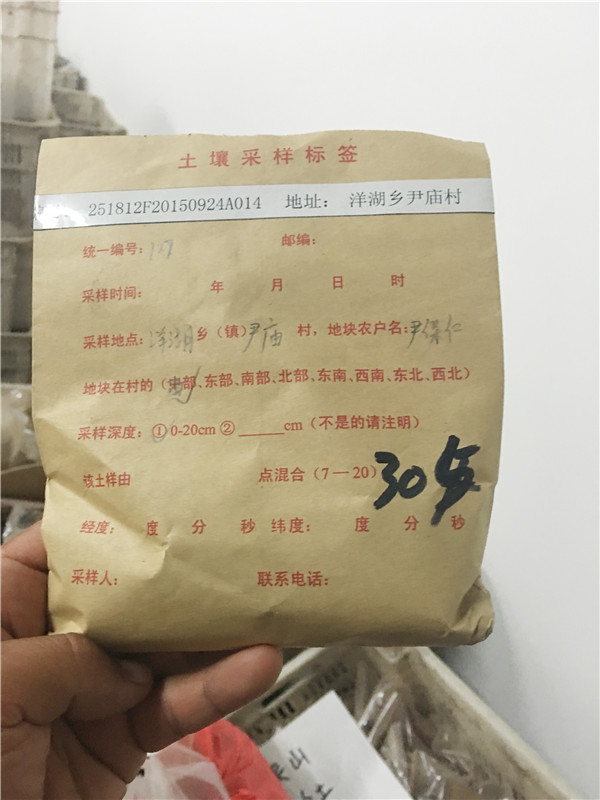 土壤采样标签
251812F20150924A014 地址: 洋湖乡尹庙村
统一编号: 127 邮编:
采样时间: 年 月 日 时
采样地点: 洋湖乡（镇）尹庙 村，地块农户名: 尹保仁
地块在村的（中部、东部、南部、北部、东南、西南、东北、西北）
采样深度: ①0-20cm ②______cm（不是的请注明）
该土样由 点混合（7—20）30点
经度: 度 分 秒 纬度: 度 分 秒
采样人: 联系电话:
山
土